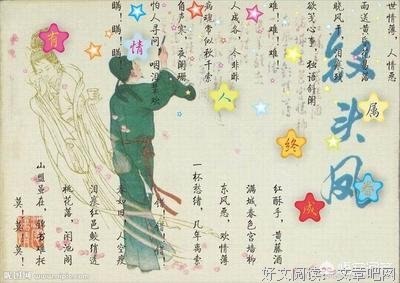 钗头凤
世情薄，人情恶
雨送黄昏花易落
晓风干，泪痕残
欲笺心事，独语斜阑
难！难！难！
人成各，今非昨
病魂常似秋千索
角声寒，夜阑珊
怕人寻问，咽泪装欢
瞒！瞒！瞒！
有情人终成眷属
红酥手，黄藤酒
满城春色宫墙柳
东风恶，欢情薄
一杯愁绪，几年离索
错！错！
春如旧，人空瘦
泪痕红邑鲛绡透
桃花落，闲池阁
山盟虽在，锦书难托
莫！莫！莫！
昵图网 www.nipic.com
好文阅读：文章吧网